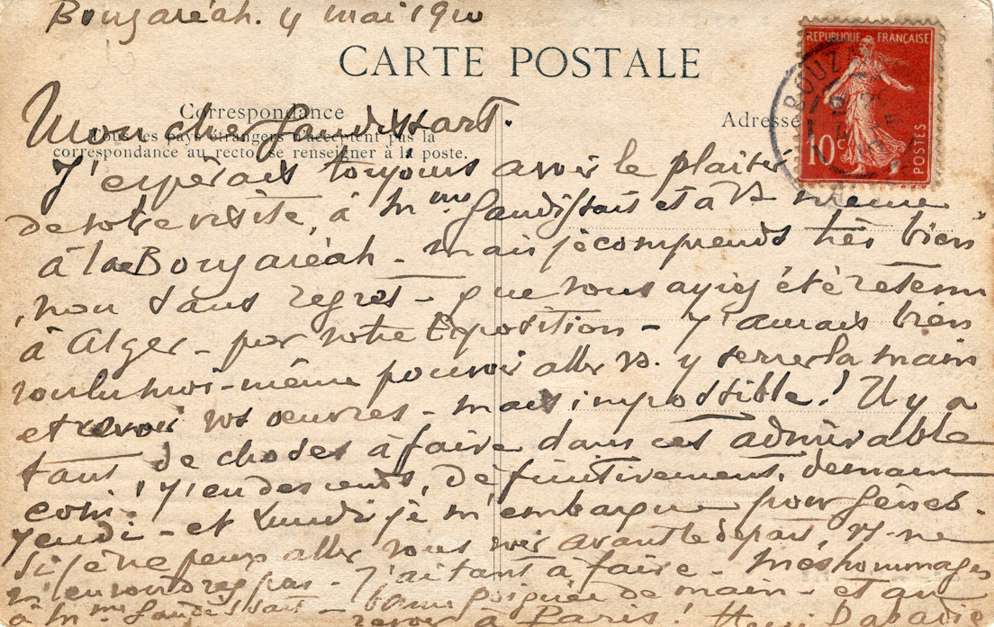 Bouzaréah. 4 mai 1910
CARTE POSTALE
REPUBLIQUE FRANÇAISE
10c
POSTES
BOUZA
Correspondance
Tous les pays étrangers n'acceptent pas la
correspondance au recto se renseigner à la poste.
Adresse
Mon cher Gaudissart.
J'espérais toujours avoir le plaisir
de votre visite, à Mme Gaudissart et à Vs même,
à la Bouzaréah - mais je comprends très bien
, non sans regret - que vous ayiez été retenu
à Alger - par votre Exposition - J'aurais bien
voulu moi-même pouvoir aller vs. y serrer la main
et revoir vos œuvres - mais impossible! Il y a
tant de choses à faire dans cet admirable
coin! J'en descends, définitivement, demain
Jeudi - et Lundi je m'embarque pour Gênes.
Si je ne peux aller vous voir avant le départ, Vs. ne
m'en voudrez pas - J'ai tant à faire - Mes hommages
à Mme Gaudissart - bonne poignée de main - et au
revoir à Paris! Henri Dabadie